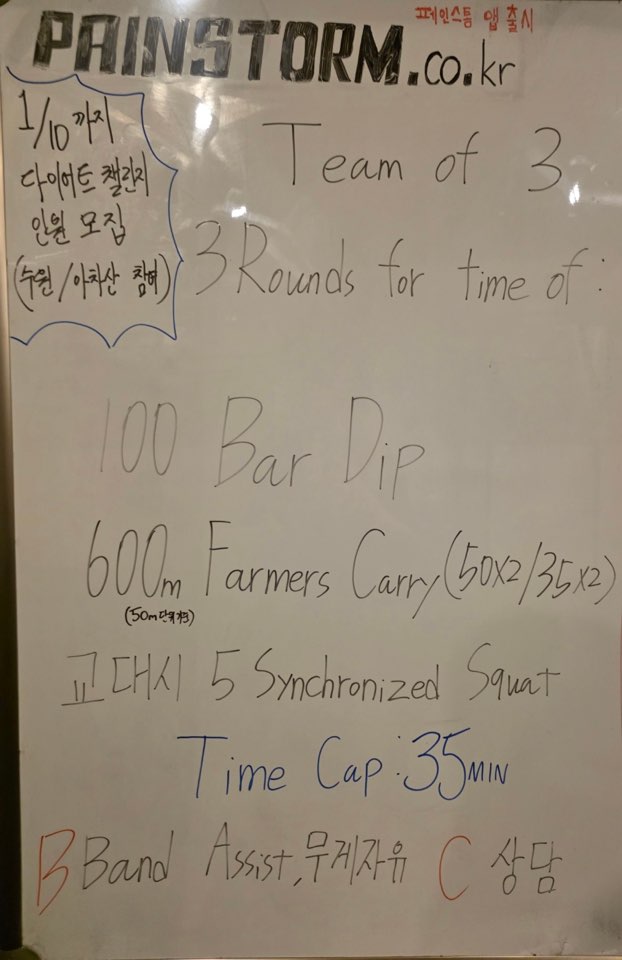 페인스톰 앱 출시
PAINSTORM.co.kr
1/10 까지
다이어트 챌린지
인원 모집
(수원/아차산 참여)
Team of 3
3 Rounds for time of:
100 Bar Dip
600m Farmers Carry (50x2/35x2)
(50m단위
교대시 5 Synchronized Squat
Time Cap : 35MIN
B Band Assist, 무게자유 C 상담